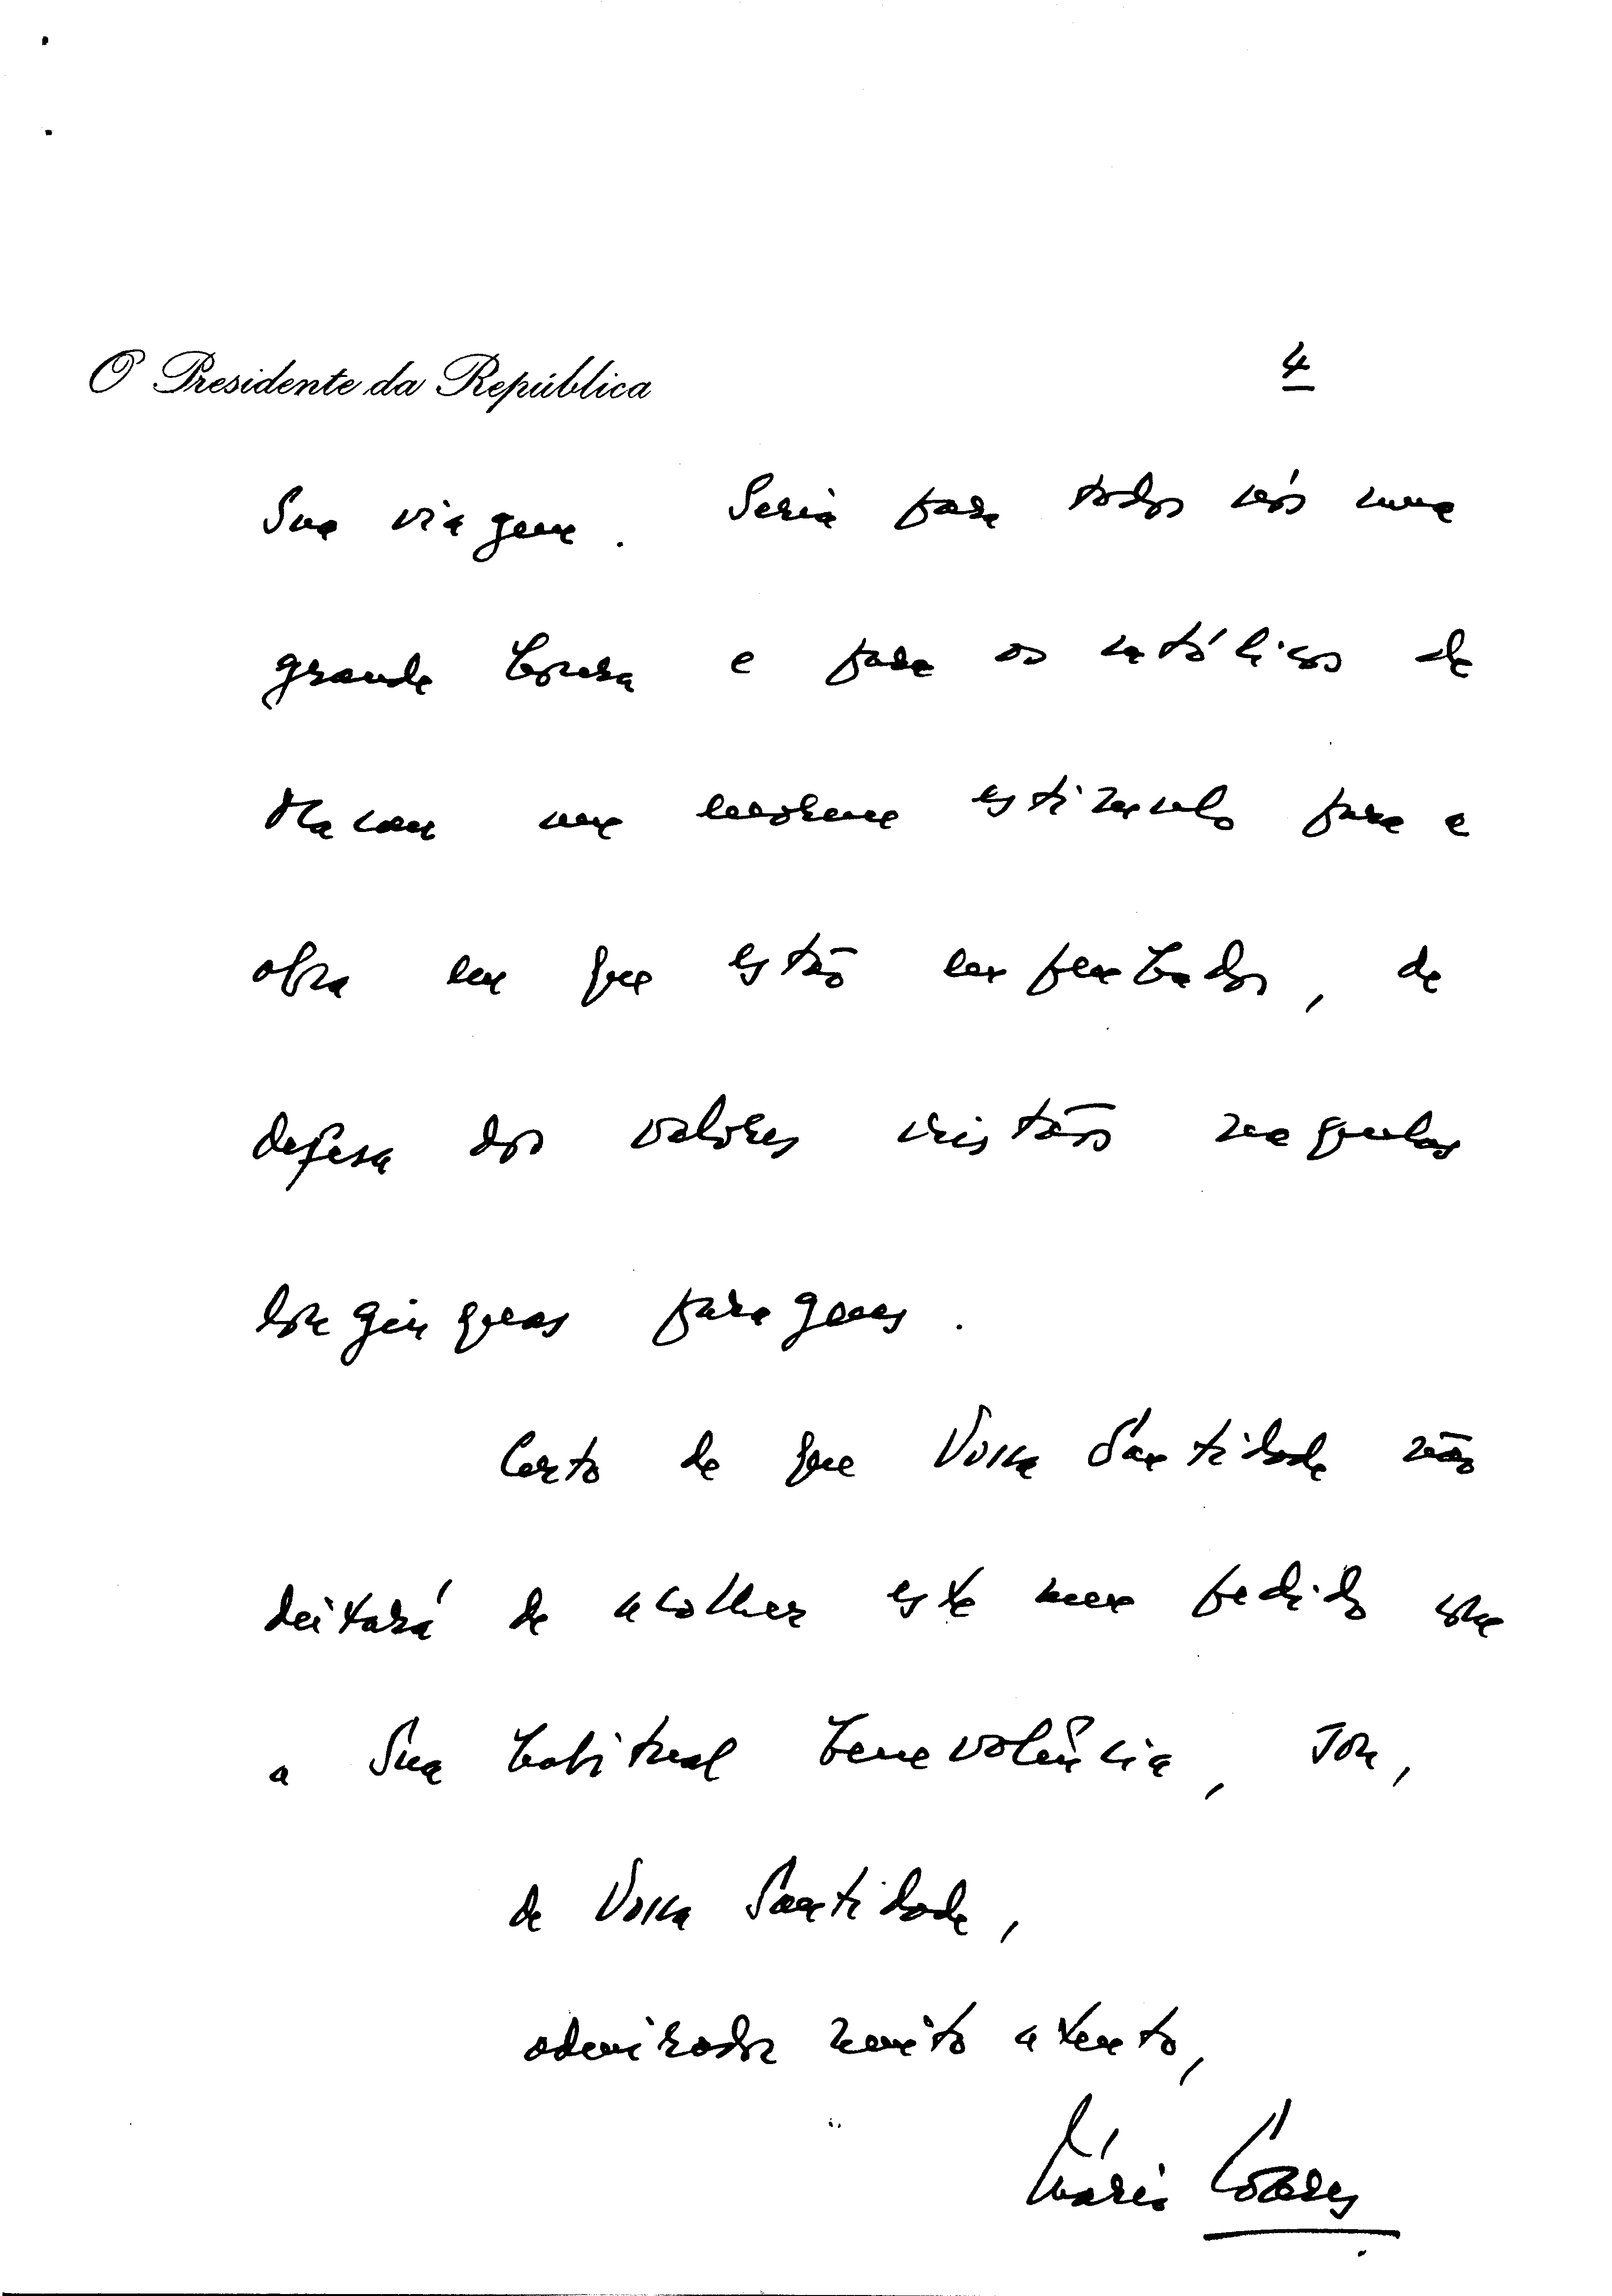 O Presidente da República
4
Sua viagem. Seria para todos nós uma
grande honra e para os católicos de
Macau um enorme estímulo para a
obra em que estão empenhados, de
defesa dos valores cristãos naquelas
longínquas paragens.
Certo de que Vossa Santidade não
deixará de acolher este meu pedido com
a Sua habitual benevolência, sou,
de Vossa Santidade,
admirador muito atento,
Mário Soares